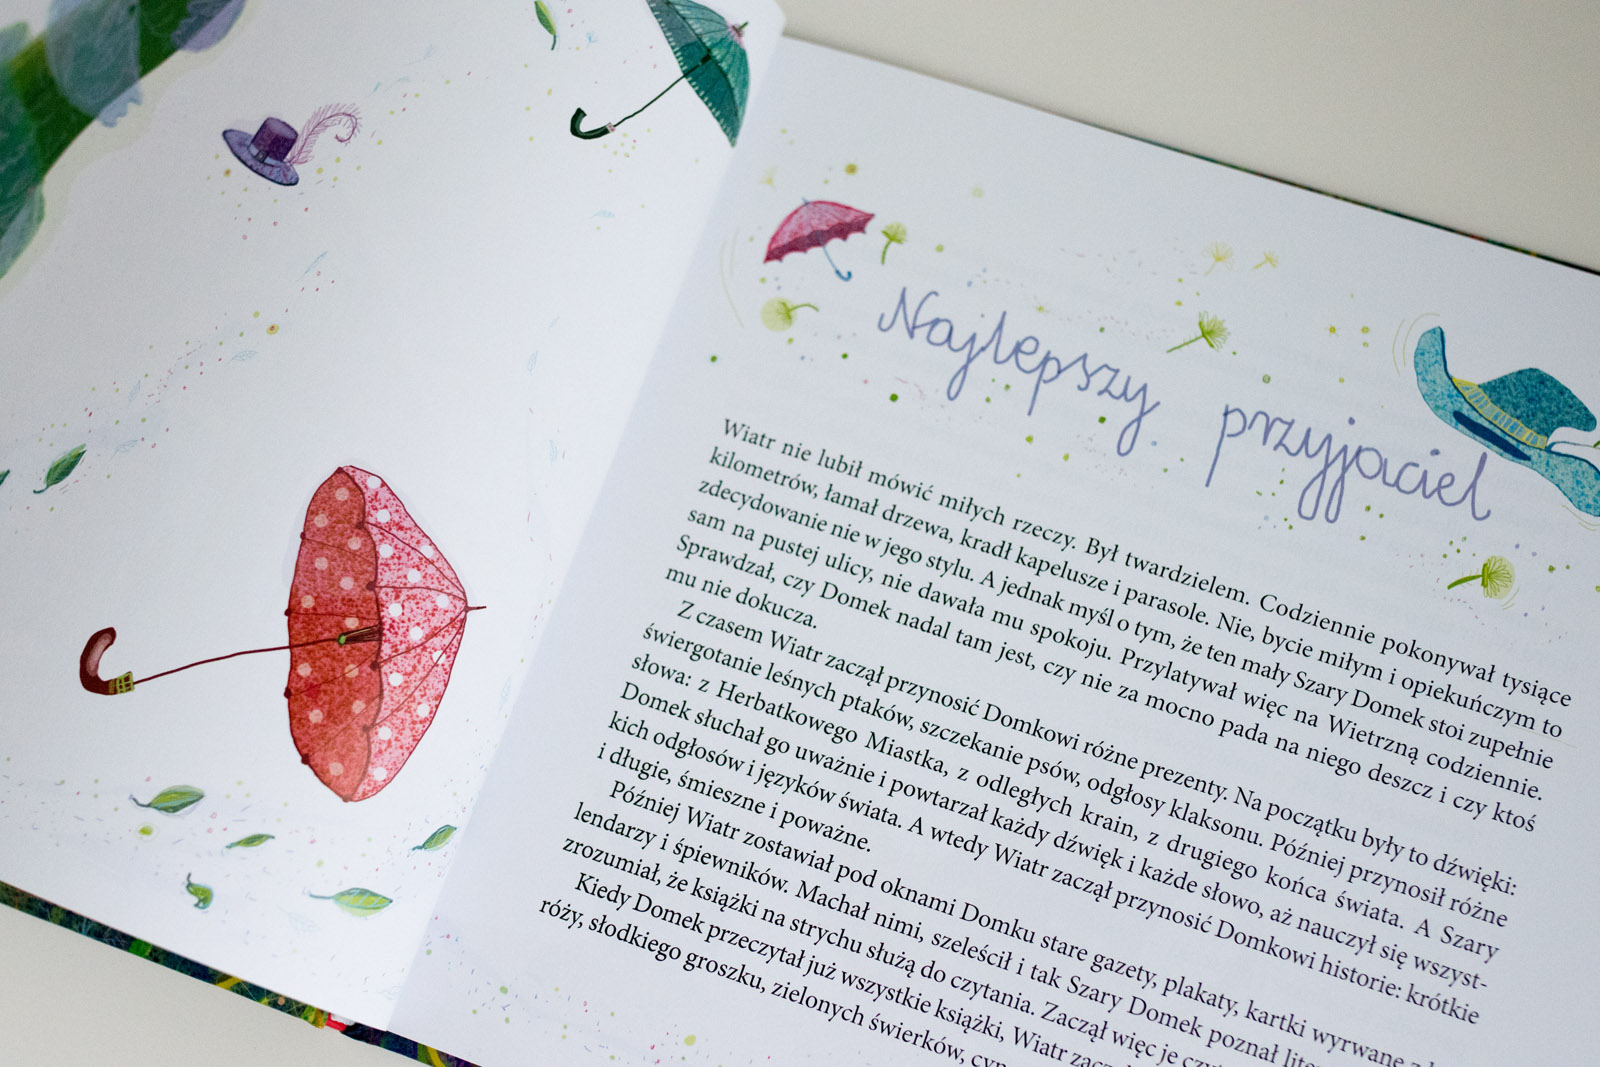 Najlepszy przyjaciel
Wiatr nie lubił mówić miłych rzeczy. Był twardzielem. Codziennie pokonywał tysiące
kilometrów, łamał drzewa, kradł kapelusze i parasole. Nie, bycie miłym i opiekuńczym to
zdecydowanie nie w jego stylu. A jednak myśl o tym, że ten mały Szary Domek stoi zupełnie
sam na pustej ulicy, nie dawała mu spokoju. Przylatywał więc na Wietrzną codziennie.
Sprawdzał, czy Domek nadal tam jest, czy nie za mocno pada na niego deszcz i czy ktoś
mu nie dokucza.
Z czasem Wiatr zaczął przynosić Domkowi różne prezenty. Na początku były to dźwięki:
świergotanie leśnych ptaków, szczekanie psów, odgłosy klaksonu. Później przynosił różne
słowa: z Herbatkowego Miastka, z odległych krain, z drugiego końca świata. A Szary
Domek słuchał go uważnie i powtarzał każdy dźwięk i każde słowo, aż nauczył się wszyst-
kich odgłosów i języków świata. A wtedy Wiatr zaczął przynosić Domkowi historie: krótkie
i długie, śmieszne i poważne.
Później Wiatr zostawiał pod oknami Domku stare gazety, plakaty, kartki wyrwane z
lendarzy i śpiewników. Machał nimi, szeleścił i tak Szary Domek poznał
zrozumiał, że książki na strychu służą do czytania. Zaczął więc je
Kiedy Domek przeczytał już wszystkie książki, Wiatr
róży, słodkiego groszku, zielonych świerków,